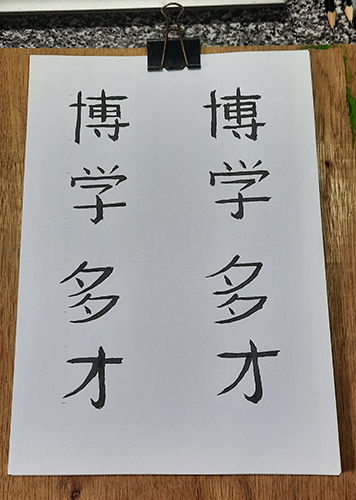 博学多才
博学多才